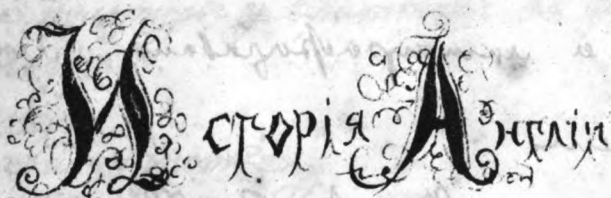 Исторія Англіи